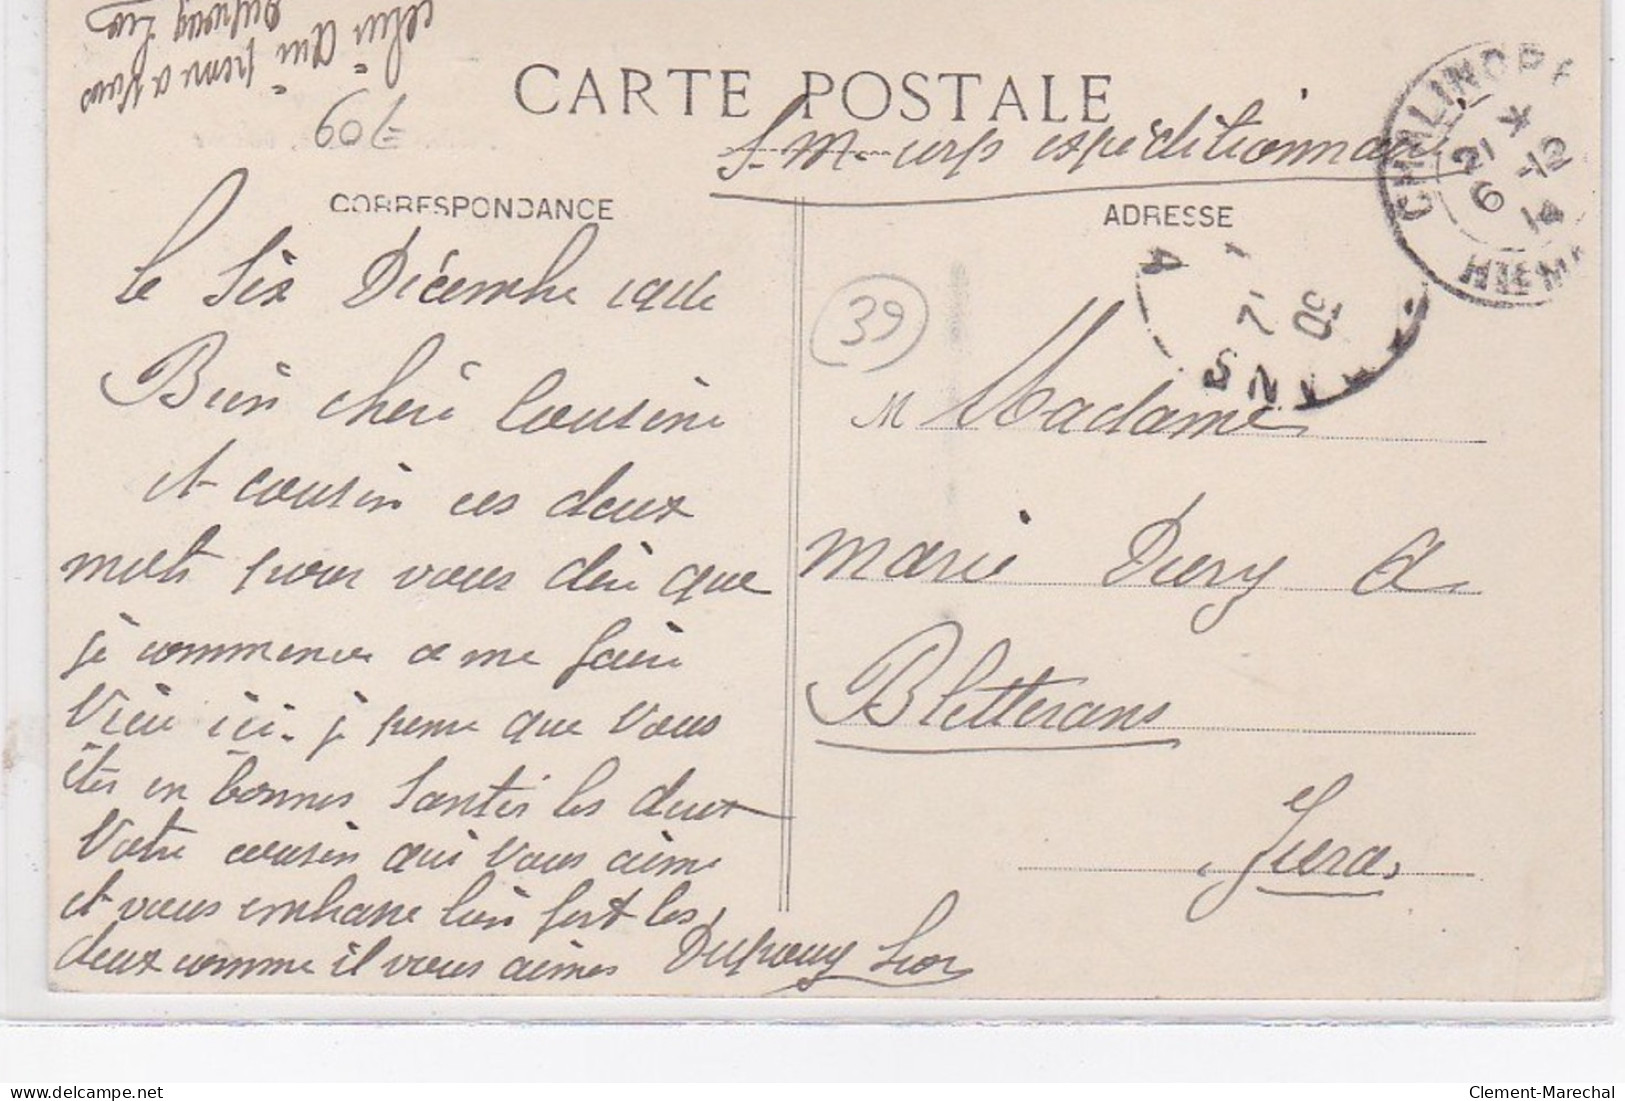 celui qui pense a vous
Dupouy Léo
60F
CARTE POSTALE
S-M- corps expéditionnaire
CORRESPONDANCE
ADRESSE
CHALINDREY
21 *
6 -12
14
HTE-M
39
le Six Décembre 1914
Bien cheré Cousine
et cousin ces deux
mots pour vous dire que
je commence a me faire
Vieu ici. je pense que Vous
êtes en bonnes Santés les deux
Votre cousin qui Vous aime
et vous embrasse bien fort les
deux comme il vous aimes Dupouy Léon
M Madame
Marie Dury a
Bletterans
Jura
Clement-Marechal